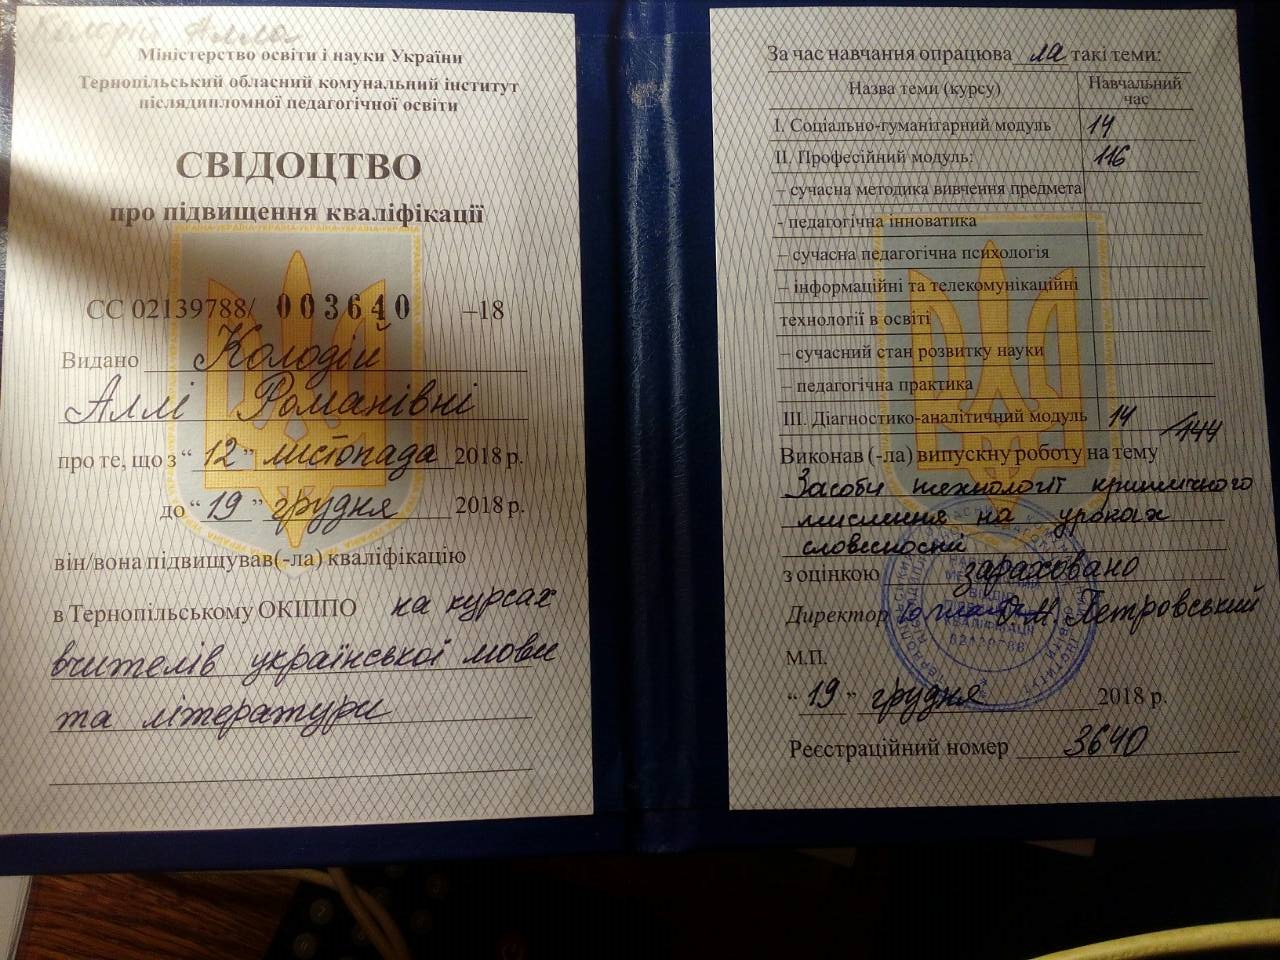 Колодій Алла
Міністерство освіти і науки України
Тернопільський обласний комунальний інститут
післядипломної педагогічної освіти
СВІДОЦТВО
про підвищення кваліфікації
СС 02139788/ 003640 –18
Видано Колодій
Аллі Романівні
про те, що з “ 12 ” листопада 2018 р.
до “ 19 ” грудня 2018 р.
він/вона підвищував(-ла) кваліфікацію
в Тернопільському ОКІППО на курсах
вчителів української мови
та літератури
За час навчання опрацюва ла такі теми:
Назва теми (курсу) Навчальний
час
I. Соціально-гуманітарний модуль 14
II. Професійний модуль: 116
– сучасна методика вивчення предмета
- педагогічна інноватика
– сучасна педагогічна психологія
– інформаційні та телекомунікаційні
технології в освіті
– сучасний стан розвитку науки
– педагогічна практика
III. Діагностико-аналітичний модуль 14 /144
Виконав (-ла) випускну роботу на тему
Засоби технології критичного
мислення на уроках
словесності
з оцінкою зараховано
Директор О.М. Петровський
М.П.
“ 19 ” грудня 2018 р.
Реєстраційний номер 3640